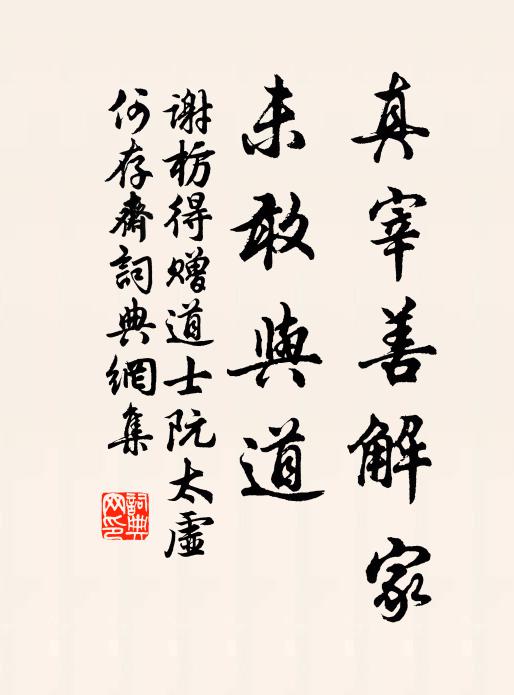 真宰善解家
未敢與道
謝枋得贈道士阮太虛
何存齋詞典網集
詞典网印